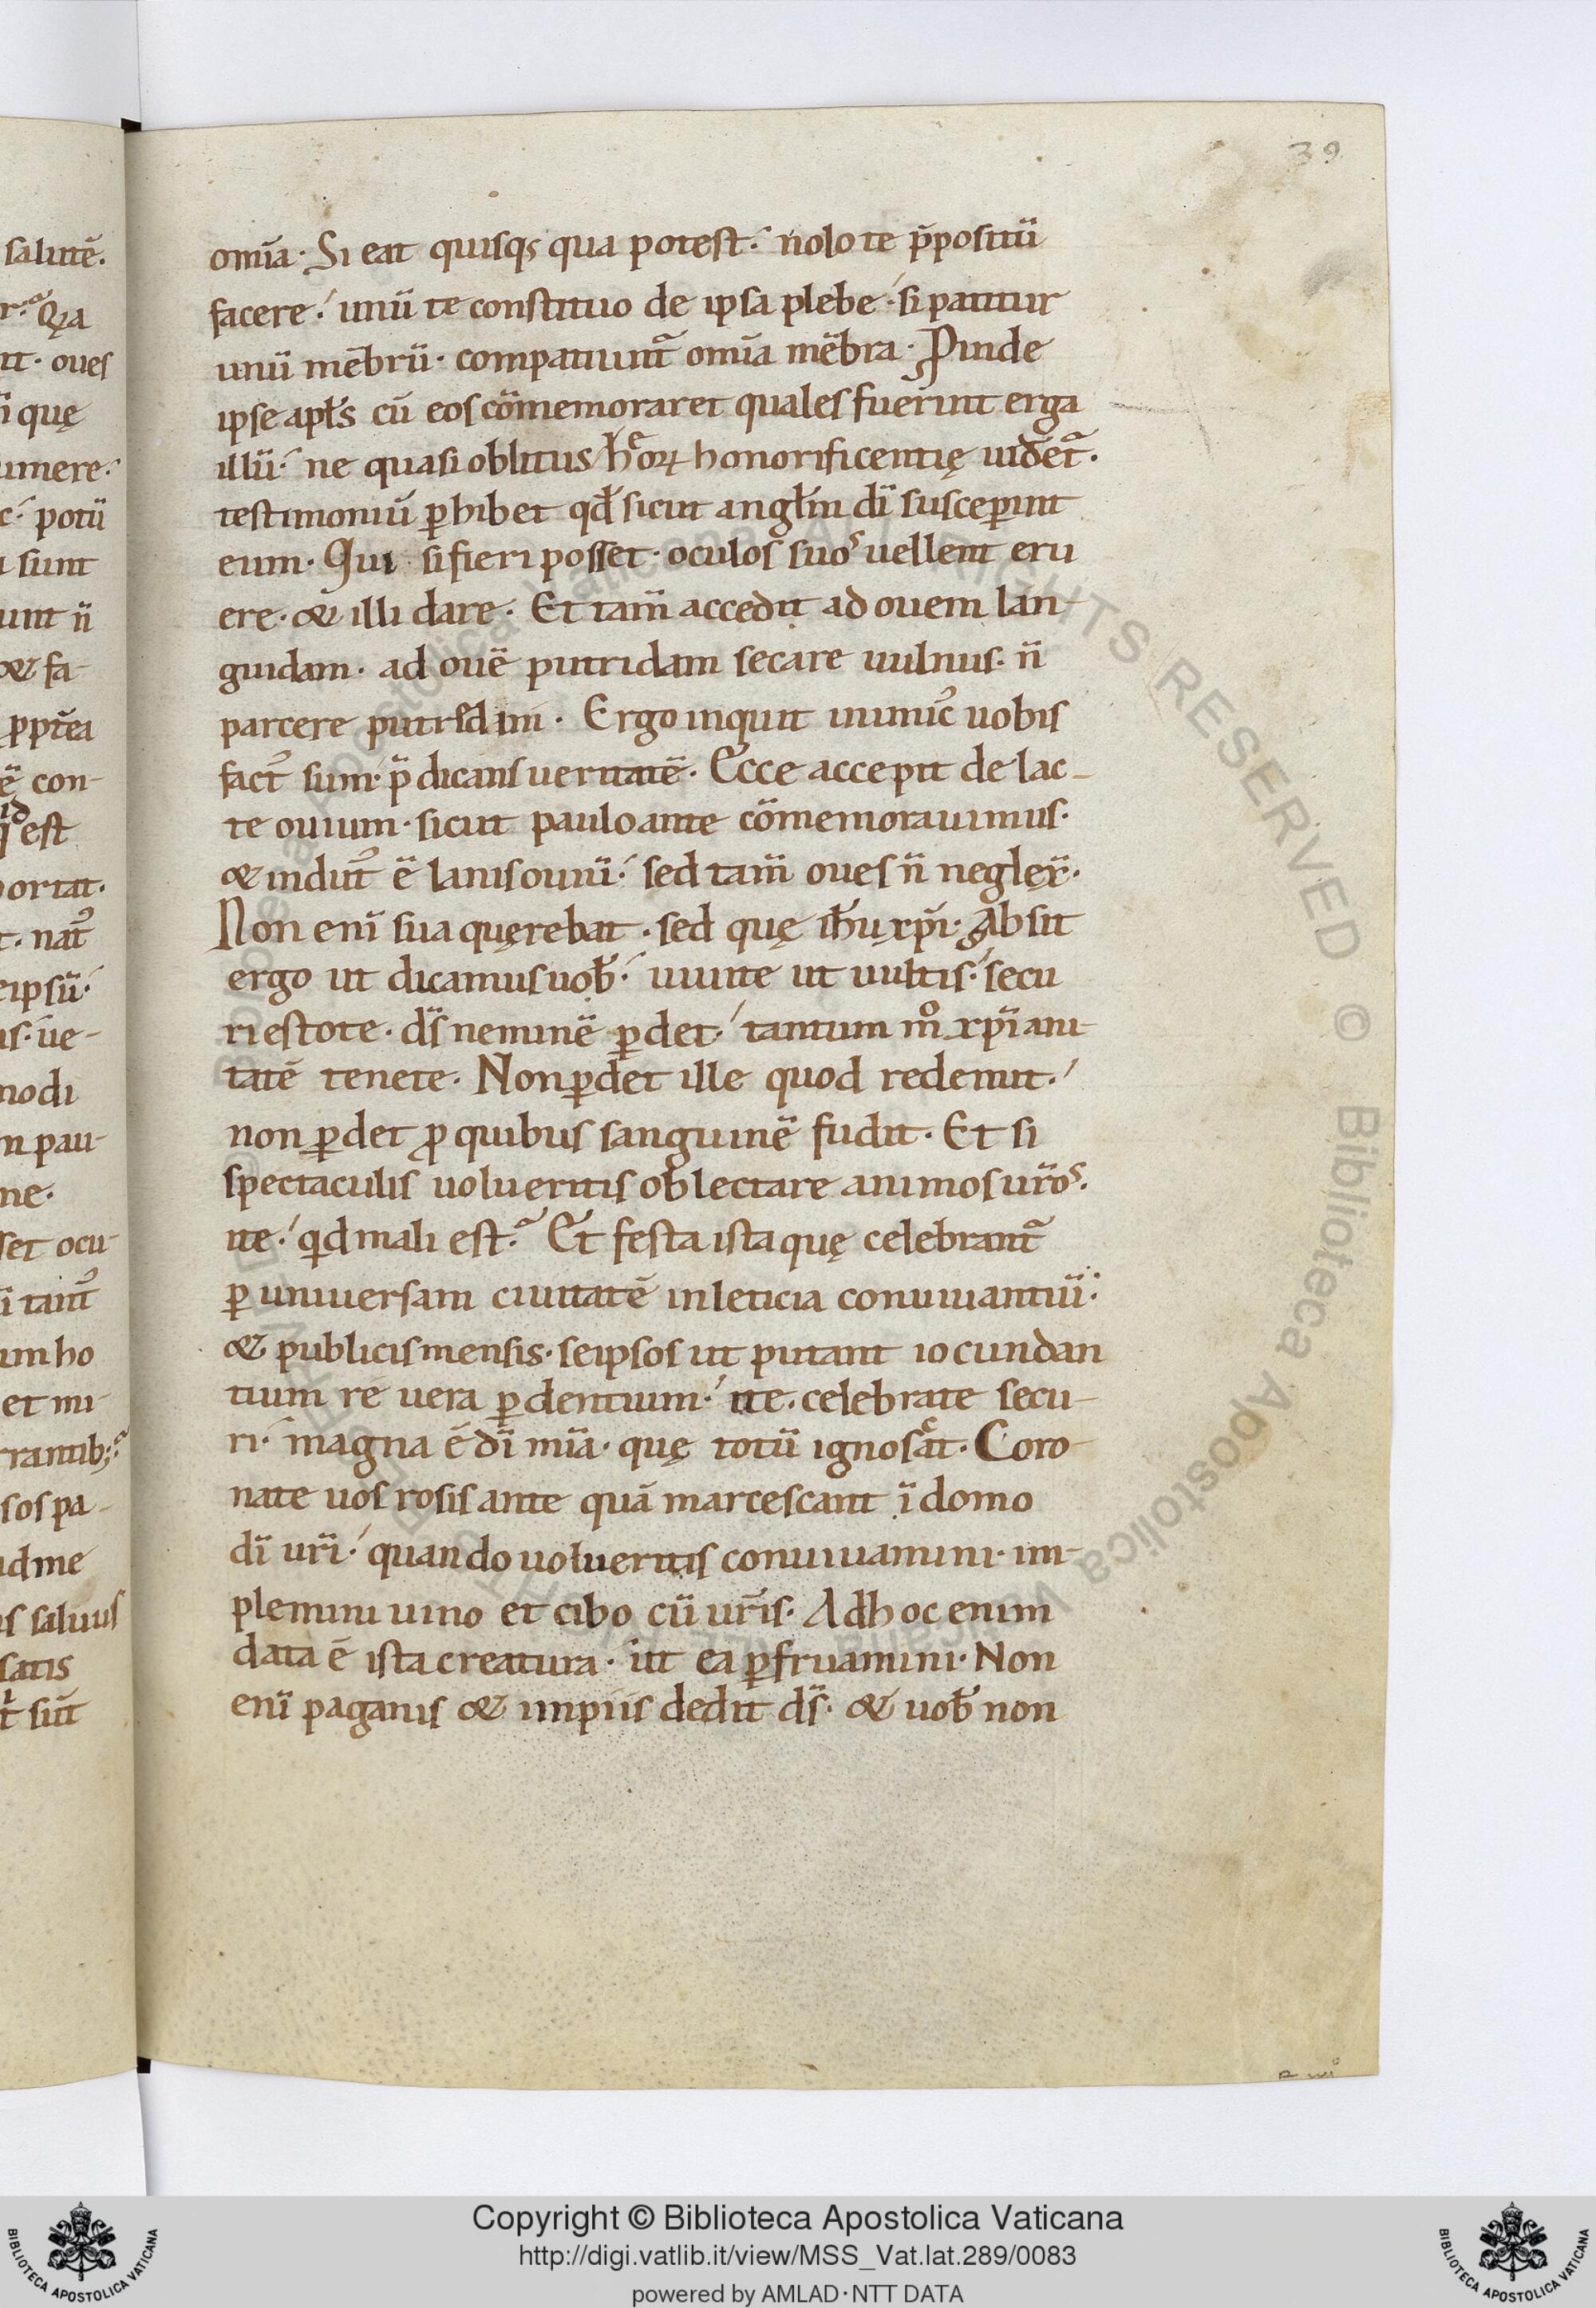 39
omīa. Si eat quisqs qua potest. nolo te p̄positū
facere. unū te constituo de ipsa plebe. si patitur
unū mēbrū. compatiunt᷑ omīa mēbra. Proinde
ipse apłs cū eos cōmemoraret quales fuerint erga
illū. ne quasi oblitus hōꝝ honorificentię uideret᷑.
testimoniū ꝑhibet qđ sicut anglm̄ dī susceꝑint
eum. Qui si fieri posset. oculos suos uellent eru
ere. & illi dare. Et tam̄ accedit ad ouem lan-
guidam. ad ouē putridam secare uulnus. n̄
parcere putredini. Ergo inquit inimicꝰ uobis
factꝰ sum. p̄dicans ueritatē. Ecce accepit de lac-
te ouium. sicut paulo ante cōmemorauimus.
& indutꝰ ē lanis ouiū. sed tam̄ oues n̄ neglex̄.
Non enī sua quęrebat. sed quę ihū xp̄i. Absit
ergo ut dicamus uob̄. uiuite ut uultis. secu
ri estote. ds̄ neminē ꝑdet. tantum mº xp̄iani-
tatē tenete. Non ꝑdet ille quod redemit.
non ꝑdet ꝓ quibus sanguinē fudit. Et si
spectaculis uolueritis oblectare animos ur̄os.
ite. qid mali est. Et festa ista quę celebrant᷑
ꝑ uniuersam ciuitatē in leticia conuiuantiū.
& publicis mensis. seipsos ut putant iocundan
tium re uera ꝑdentium. ite. celebrate secu-
ri. magna ē dī mīa. quę totū ignoscat. Coro-
nate uos rosis ante quā marcescant. ī domo
dī ur̄i. quando uolueritis conuiuamini. im-
plemini uino et cibo cū ur̄is. Ad hoc enim
data ē ista creatura. ut ea ꝑfruamini. Non
enī paganis & impiis dedit ds̄. & uob̄ non
salutē.
Qia
oues
quę
umere.
potū
sunt
unt n̄
& fa-
ꝓpt̄ea
ē con-
est
portat.
natꝰ
eipsū.
ue-
modi
pau-
ne.
set ocu-
tantꝰ
um ho
et mi-
rrantib;
sos pa-
ad me
saluus
satis
sūt
Copyright © Biblioteca Apostolica Vaticana
http://digi.vatlib.it/view/MSS_Vat.lat.289/0083
powered by AMLAD·NTT DATA
BIBLIOTECA APOSTOLICA VATICANA
BIBLIOTECA APOSTOLICA VATICANA